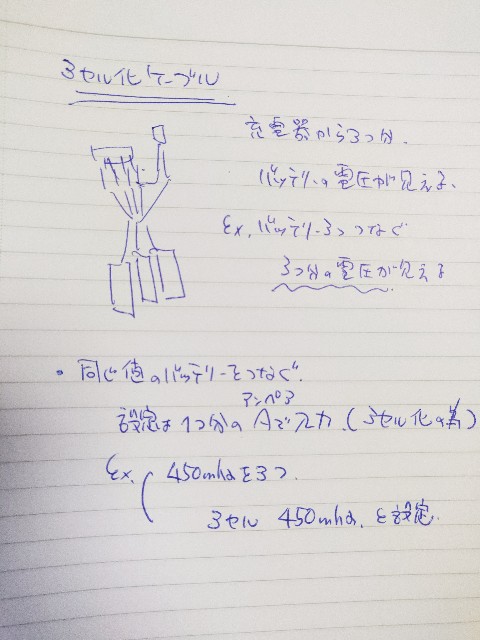 3セル化ケーブル
充電器から3つ分.
バッテリーの電圧が見える.
Ex. バッテリー3つつなぐ
3つ分の電圧が見える
・同じ値のバッテリーをつなぐ.
アンペア
設定は1つ分のAで入力.(3セル化の為)
Ex. 450mhaを3つ.
3セル 450mha. を設定.